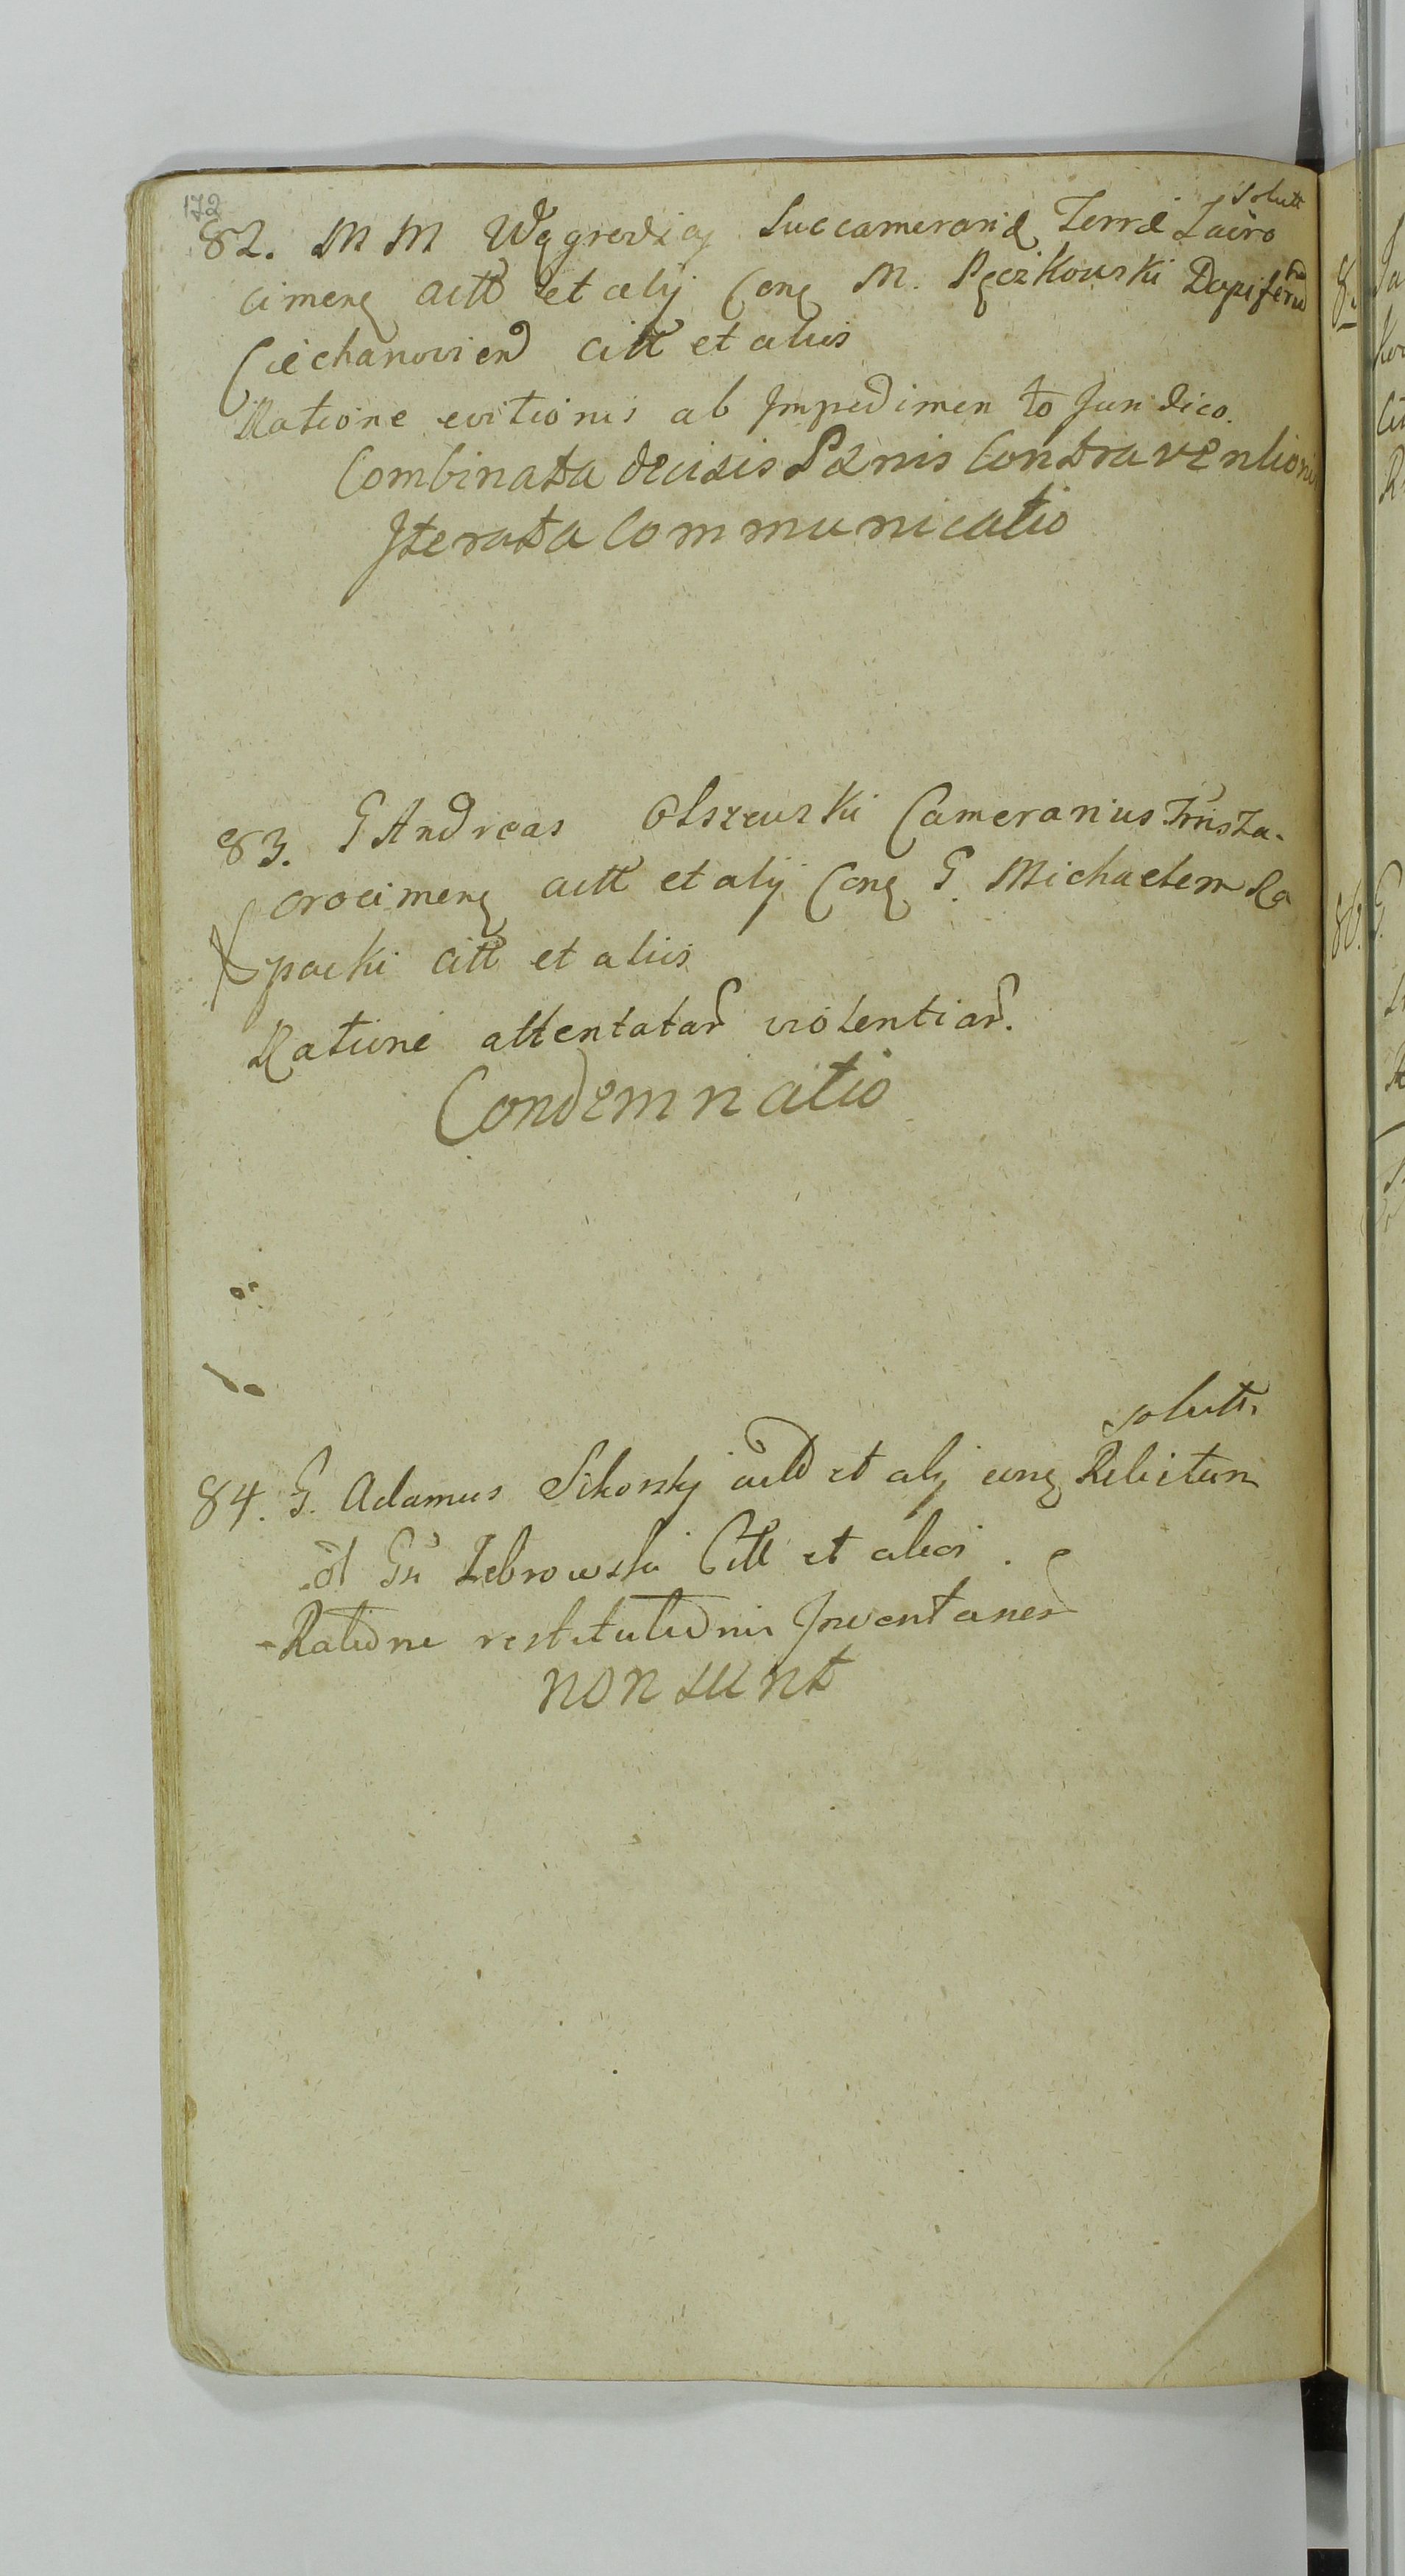 172
solutt
82. M M Węgrodzcy Succamerarid Terrae Zacro
cimenę actt et alij Conę M. Pęczkowski Dapiferū
Ciechanovien citt et alios
Ratione evitionis ab Impedimen to Juridico.
Combinata decisis Paenis Contraventionis
Iterata Communicatio
83. G Andreas Olszewski Camerarius Trris Za-
crocimenę actt et alij Conę G. Michaelem Ra
packi citt et alios
Ratione attentatar violentiar.
Condemnatio
solutt.
84. G. Adamus Sikorsky actt et alij conę Relictam
ol Gn Zebrowski Citt et alios.
Ratione restitutionis Inventaner
non sunt